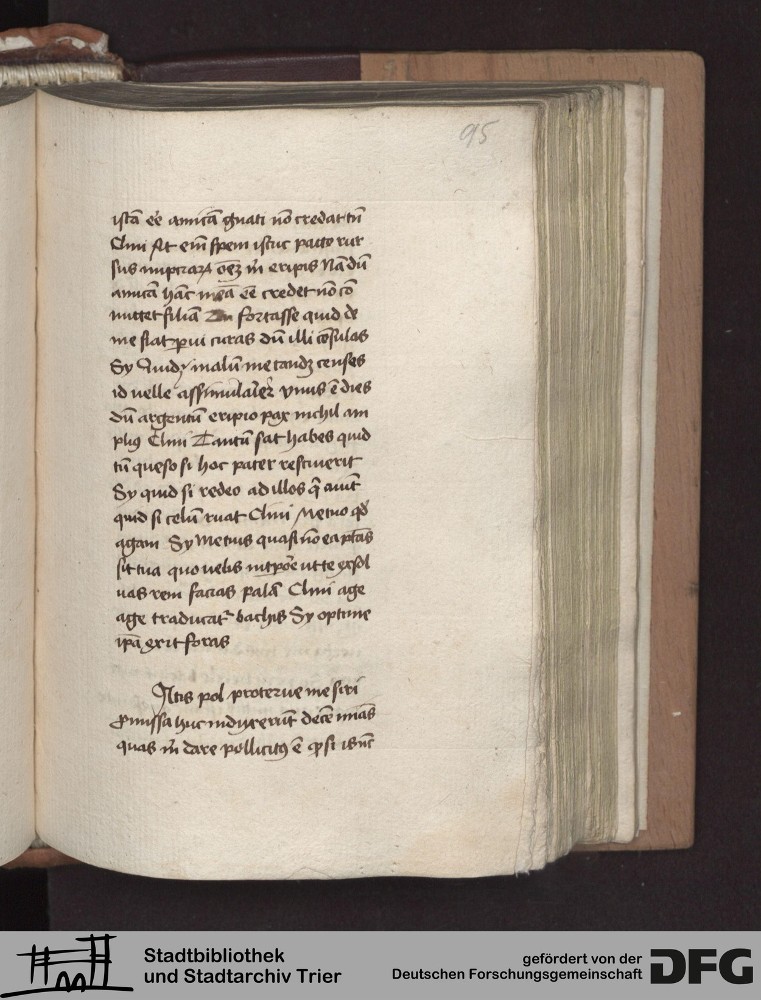 95
istā eē amicā gnati nō credat tū
Clini At eni᷒ spem istuc pacto rur
sus nuptiaꝝ oēꝫ m̄ eripis Nā dū
amicā hāc meā eē credet nō cō
mittet filiā Tu fortasse quid de
me fiat parui curas dū illi cōsulas
Sy Quid malū me tandē censes
id uelle assimularieꝛ vnus ē dies
dū argentū eripio pax nichil am
plius Clini Tantū sat habes quid
tū queso si hoc pater resciuerit
Sy quid si redeo ad illos q̄ aiūt
quid si celū ruat Clini Metuo qđ
agam Sy Metuis quasi nō ea ptās
sit tua quo uelis intpōe ut te exsol
uas rem facias palā Clini age
age traducat᷑ bachis Sy optime
ipā exit foras
Satis pol proterue me siri
promissa huc induxerūt decē minas
quas m̄ dare pollicitꝰ ē qđ si is nūc
Stadtbibliothek
und Stadtarchiv Trier
gefördert von der
Deutschen Forschungsgemeinschaft
DFG